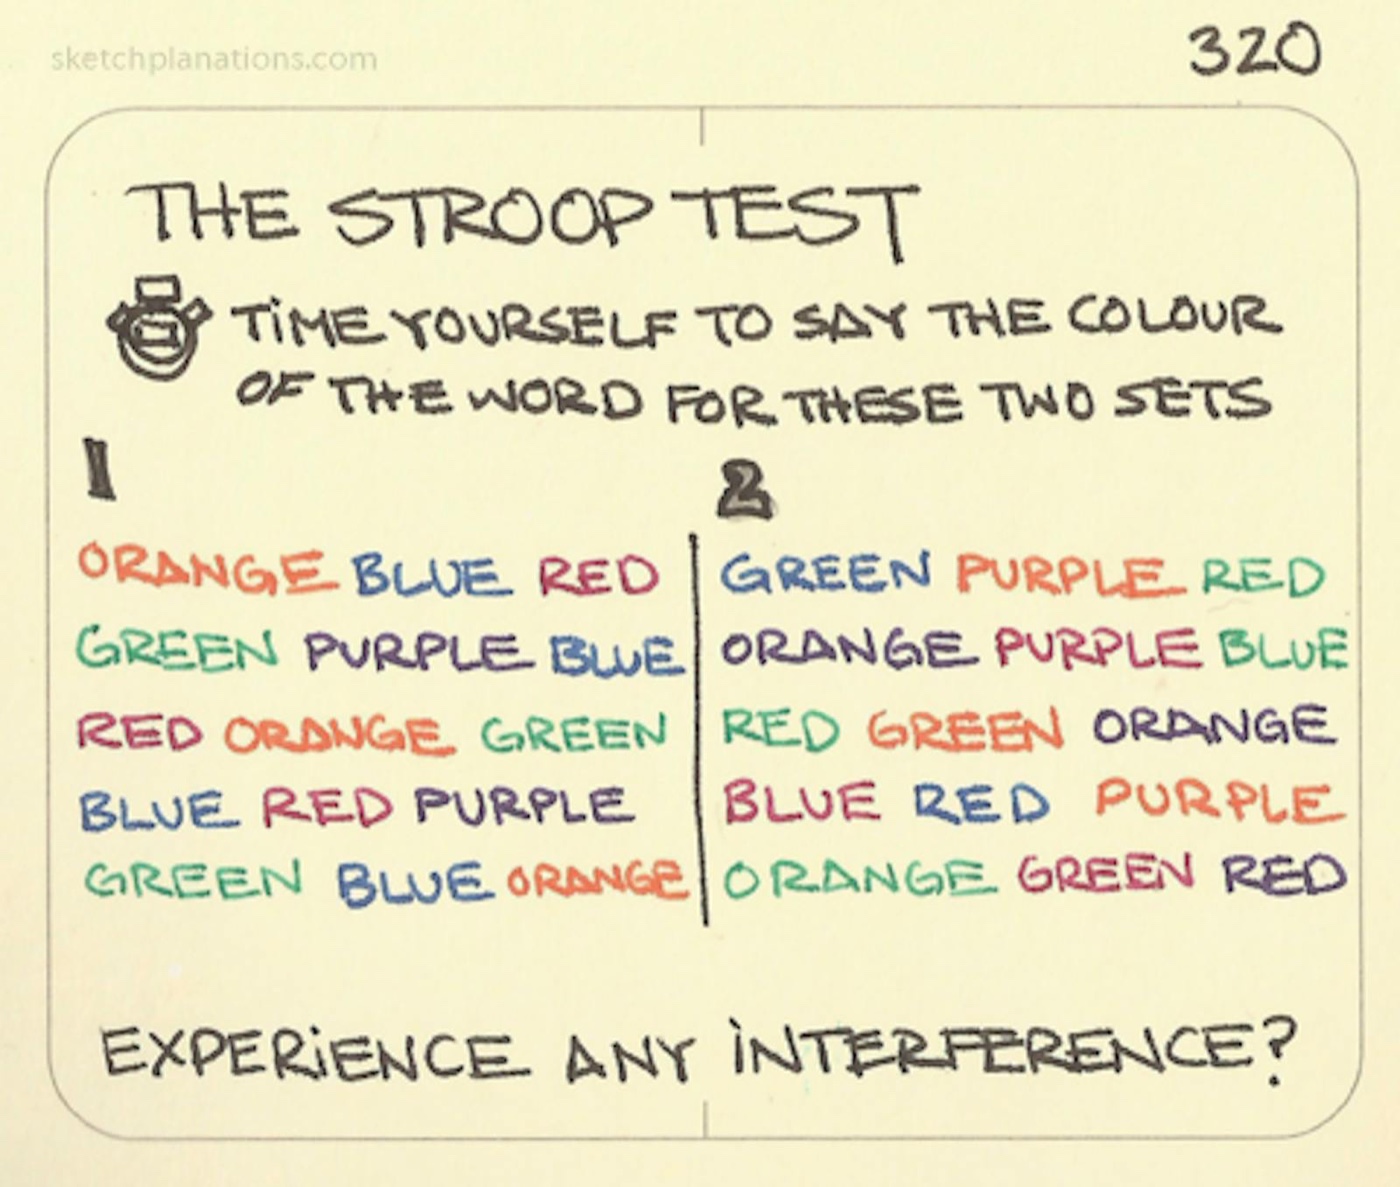 sketchplanations.com
320
THE STROOP TEST
TIME YOURSELF TO SAY THE COLOUR
OF THE WORD FOR THESE TWO SETS
1
ORANGE BLUE RED
GREEN PURPLE BLUE
RED ORANGE GREEN
BLUE RED PURPLE
GREEN BLUE ORANGE
2
GREEN PURPLE RED
ORANGE PURPLE BLUE
RED GREEN ORANGE
BLUE RED PURPLE
ORANGE GREEN RED
EXPERIENCE ANY INTERFERENCE?